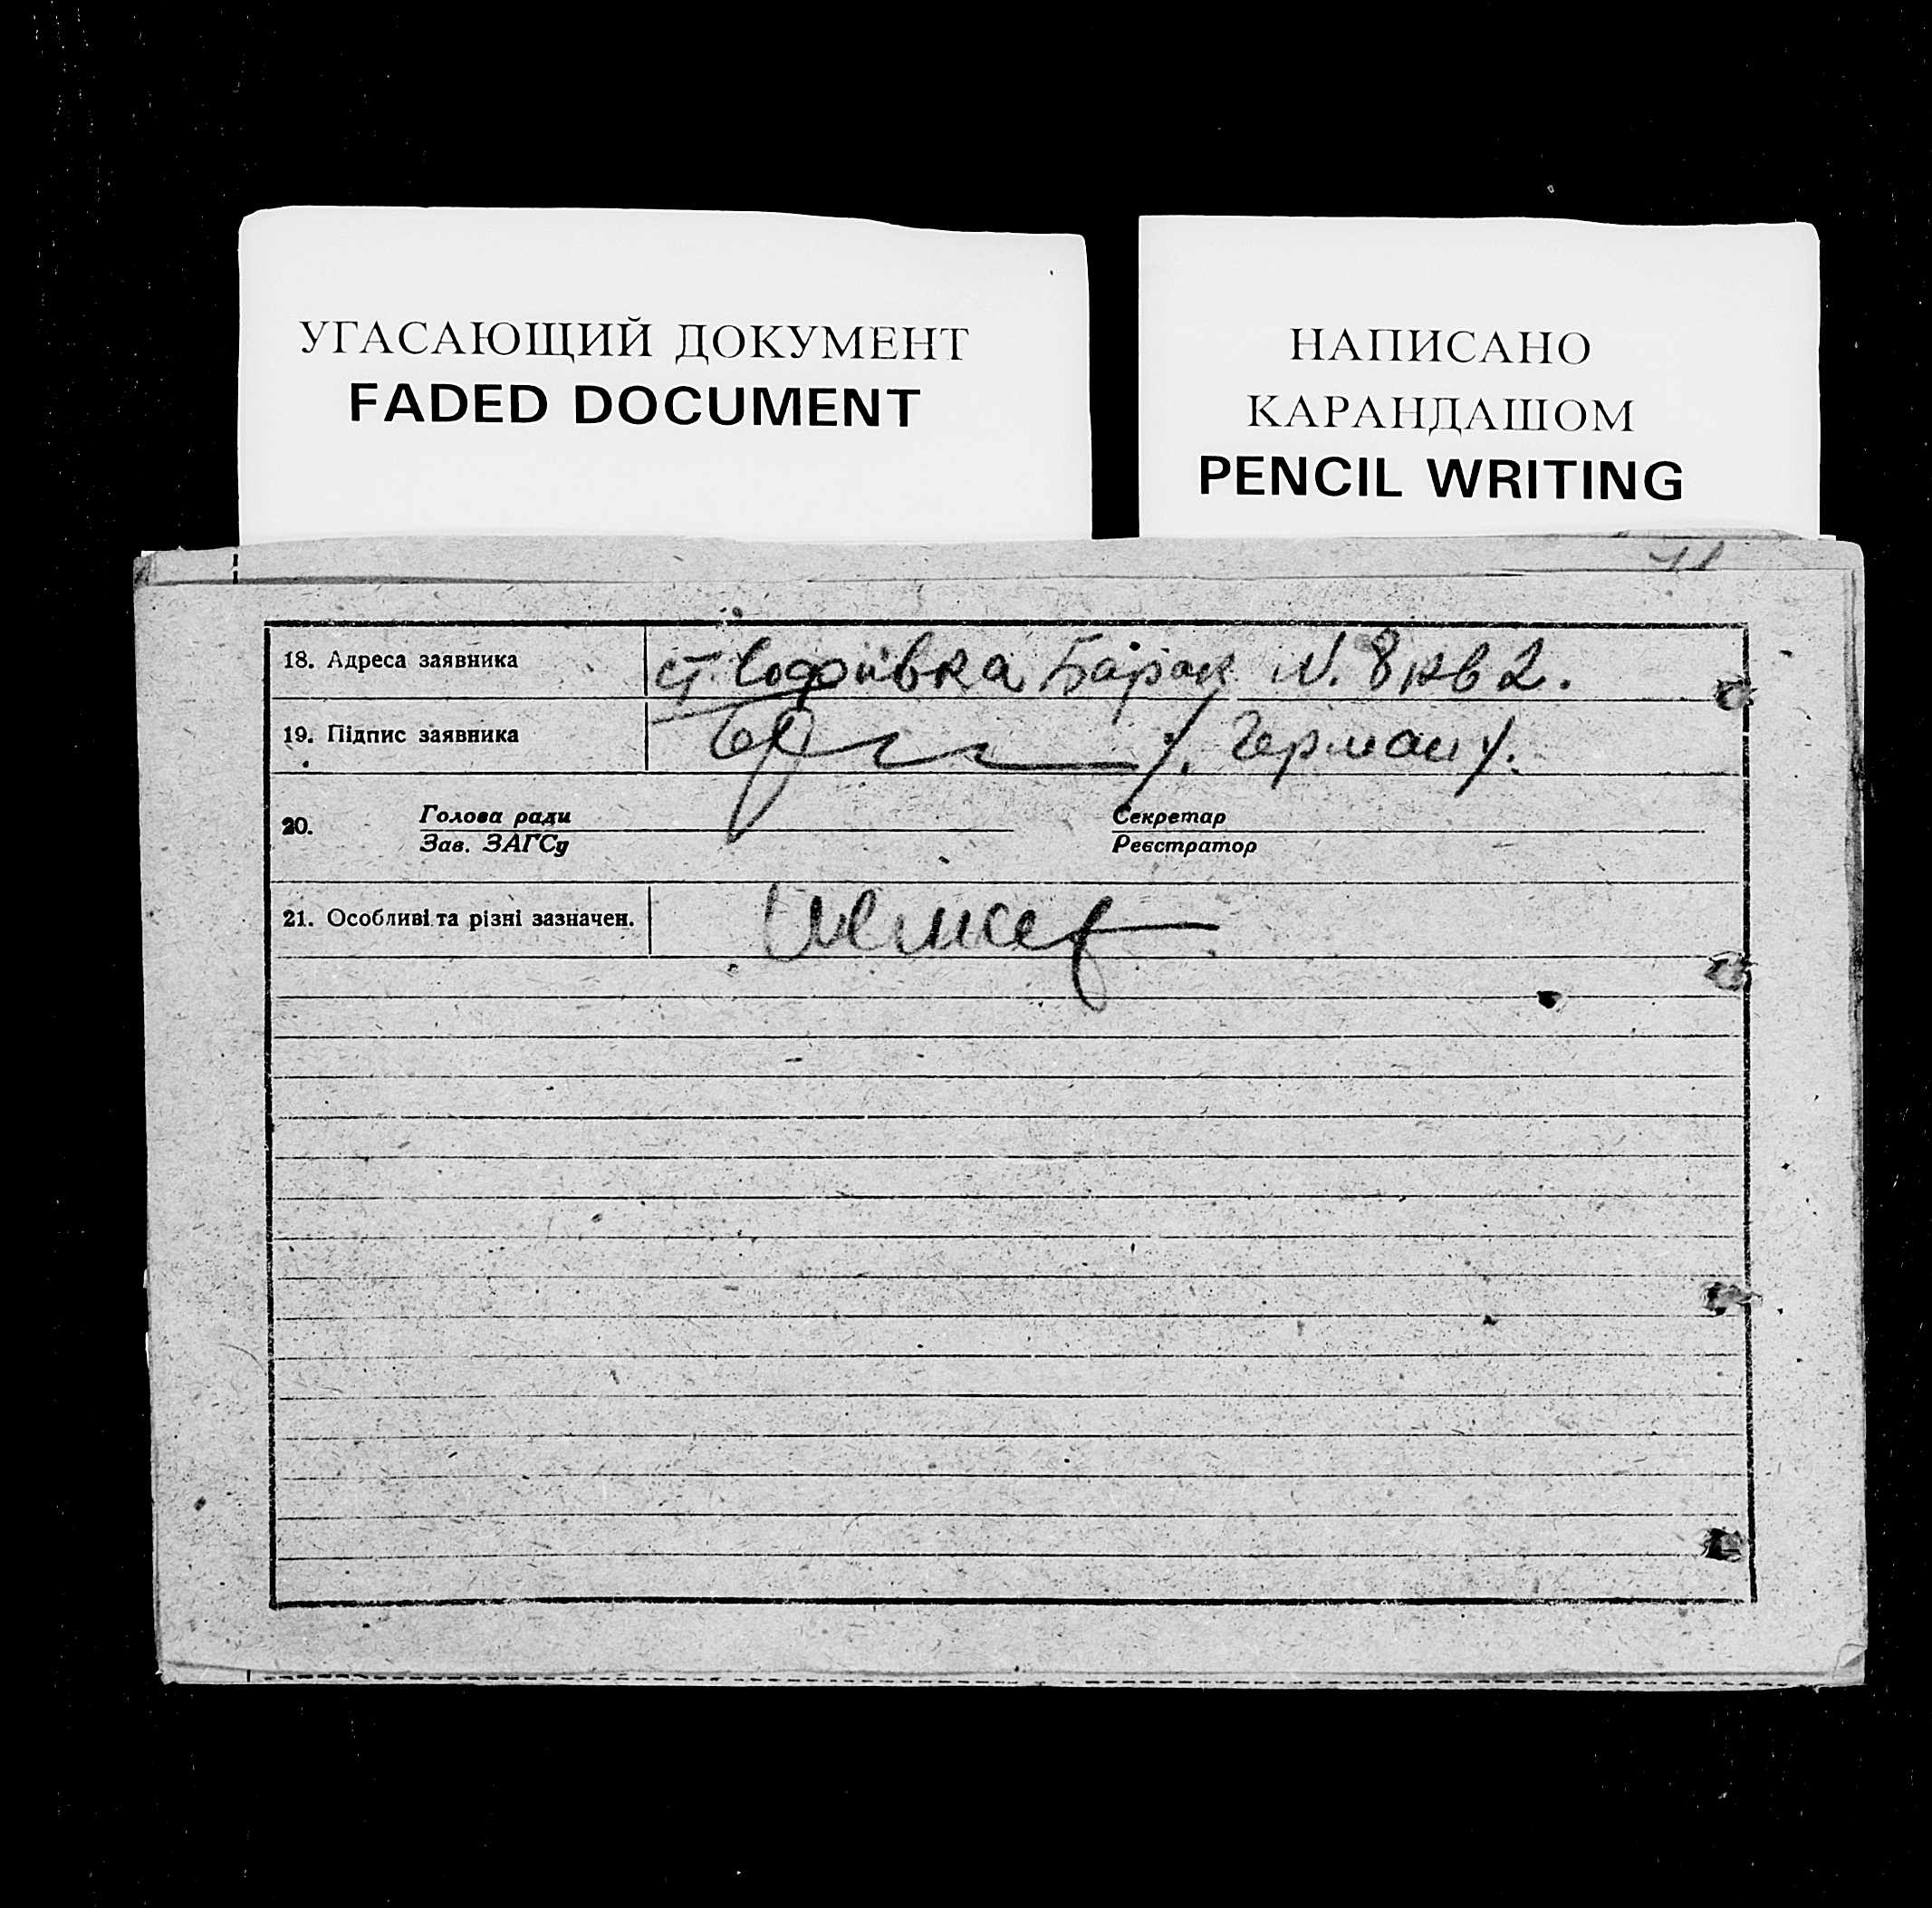 УГАСАЮЩИЙ ДОКУМЕНТ
FADED DOCUMENT
НАПИСАНО
КАРАНДАШОМ
PENCIL WRITING
18. Адреса заявника ст. Софиівка Барак N. 8 кв 2.
19. Підпис заявника
20. Голова ради Секретар
Зав. ЗАГСу Реєстратор
21. Особливі та різні зазначен.